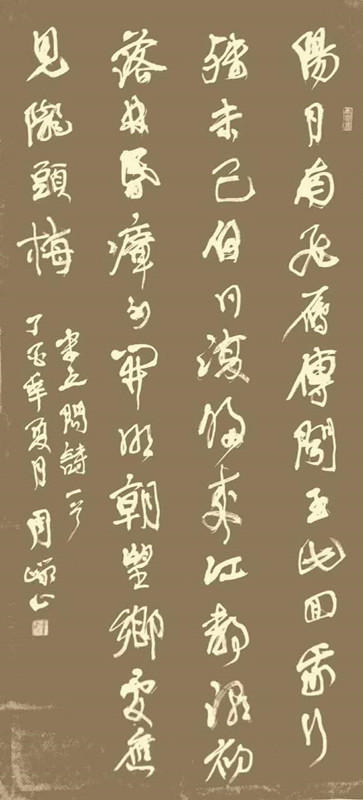 陽月南飛雁傳聞至此回我行
殊未已何日復歸來江靜潮初
落林昏瘴不開明朝望鄉處應
見隴頭梅
宋之問詩一首
丁年夏月周